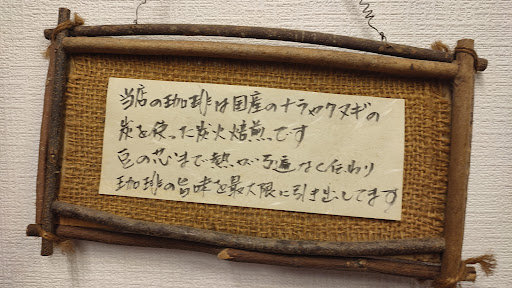 当店の珈琲は国産のナラやクヌギの
炭を使った炭火焙煎です
豆の芯まで熱が万遍なく伝わり
珈琲の旨味を最大限に引き出してます